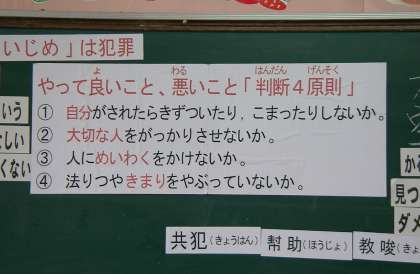 いじめ」は犯罪
やって良いこと、悪いこと「判断４原則」
よ わる はんだん げんそく
① 自分がされたらきずついたり，こまったりしないか。
② 大切な人をがっかりさせないか。
③ 人にめいわくをかけないか。
④ 法りつやきまりをやぶっていないか。
いう
しい
くない
見つ
ダメ
共犯（きょうはん）
幇助（ほうじょ）
教唆（きょうさ